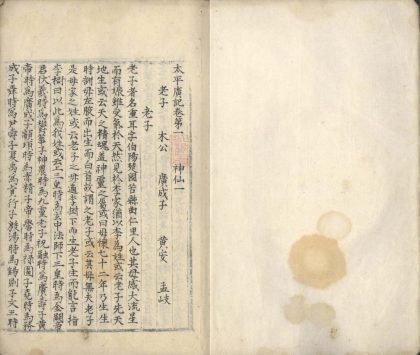 太平廣記卷第一 神仙一
老子 木公 廣成子 黃安 孟岐
老子
老子者名重耳字伯陽楚國苦縣曲仁里人也其母感大流星
而有娠雖受氣於天然見於李家猶以李為姓或云老子先天
地生或云天之精魄蓋神靈之屬或曰母懷七十二年乃生生
時剖母左腋而出生而白首故謂之老子或云其母無夫老子
是母家之姓或云老子之母適李樹下而生老子生而能言指
李樹曰以此為我姓或云上三皇時為玄中法師下三皇時為金闕帝
君伏羲時為鬱華子神農時為九靈老子祝融時為廣壽子黃
帝時為廣成子顓頊時為赤精子帝嚳時為祿圖子堯時為務
成子舜時為尹壽子夏禹時為真行子殷湯時為錫則子文王時